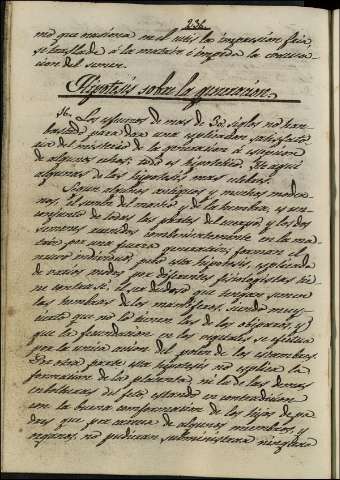 236.
no que ocasiona en el utero la impresion fria
se traslade á la matriz é impide la evacua-
cion del semen.
Hipotesis sobre la generacion.
56. Los esfuerzos de mas de 30 siglos no han
bastado para dar una esplicacion satisfacto-
ria del misterio de la generacion á escepcion
de algunos echos; todo es hipotetico. He aqui
algunas de las hipotesis mas celebres.
Segun algunos antiguos y muchos moder-
nos, el semen del macho y de la hembra, es un
conjunto de todas las partes del cuerpo, y los dos
semenes reunidos convenientemente en la ma-
triz por una fuerza generatriz, forman el
nuevo individuo; pero esta hipotesis, esplicada
de varios modos por diferentes fisiologistas tie-
ne contra sí, el ser dudoso que tengan semen
las hembras de los mamiferos, siendo muy
cierto que no le tienen las de los oviparos, y
que la fecundacion en los vegetales se efectua
con la unica union del polen de los estambres.
Por otra parte esta hipotesis no esplica la
formacion de la placenta, ni la de las demas
envolturas del feto, estando en contradiccion
con la buena conformacion de los hijos de pa-
dres que por carecer de algunos miembros, y
organos, no pudieran subministrar ninguna